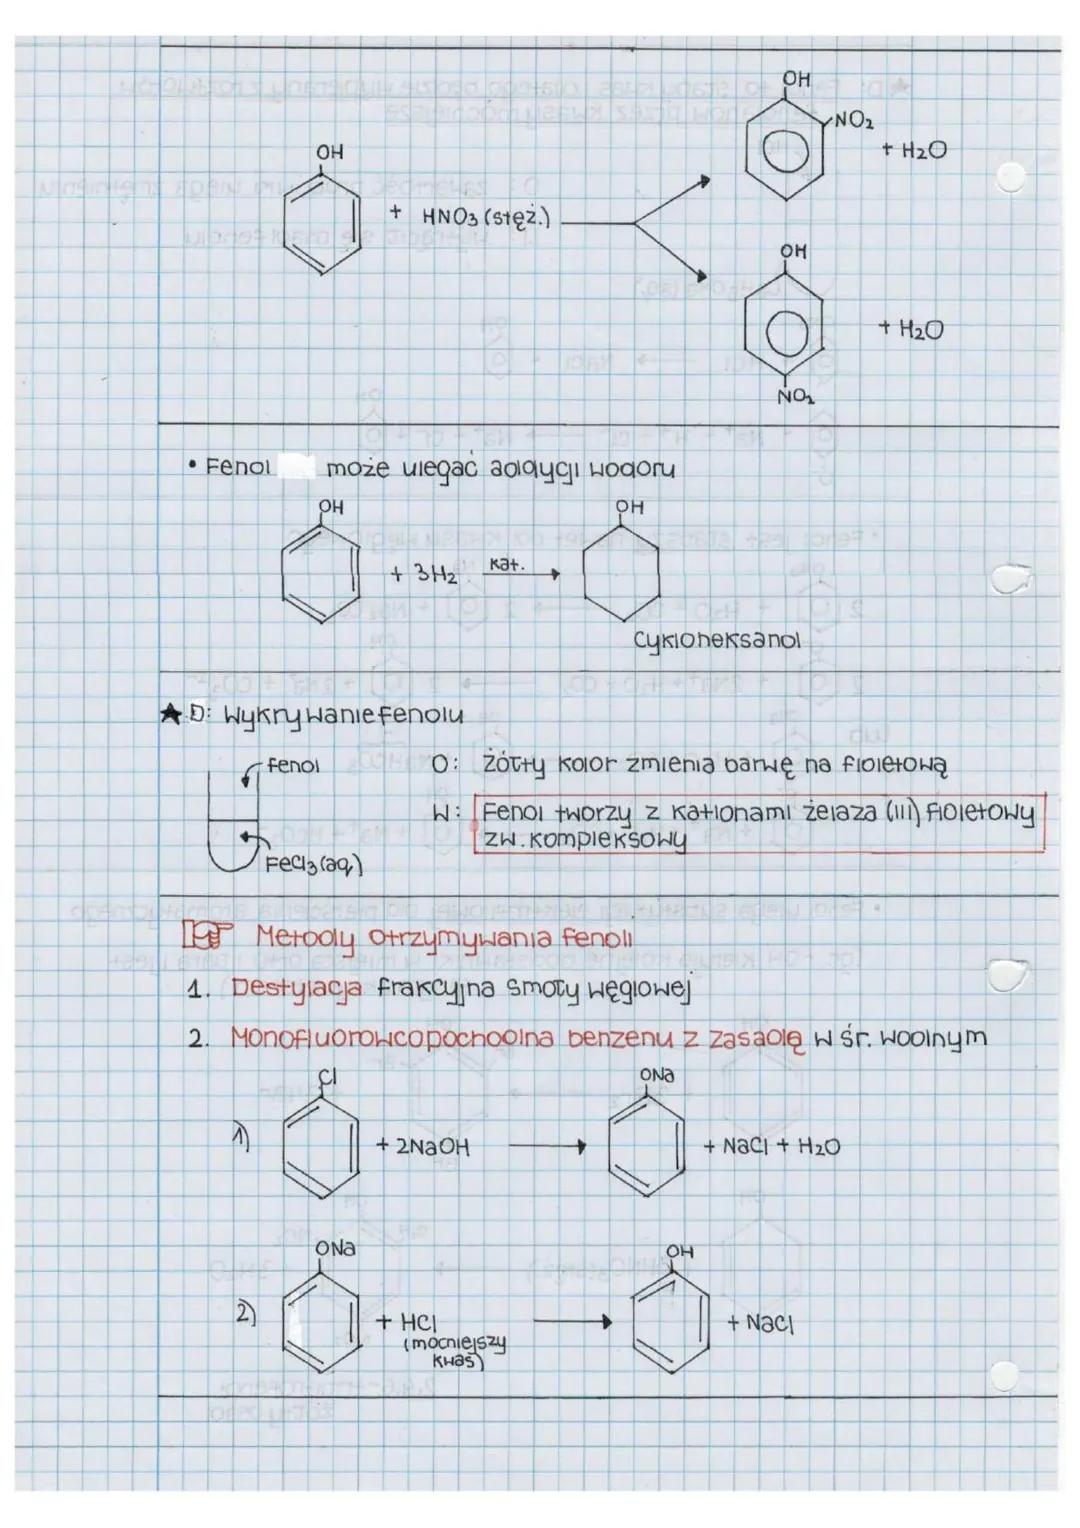 OH
NO2
+ H2O
OH
+ HNO3 (stęż.)
OH
+ H2O
NO2
• Fenol może ulegać addycji wodoru
OH
OH
+ 3H2
kat.
Cykloheksanol
★ D: Wykrywanie fenolu
fenol
O: żółty kolor zmienia barwę na fioletową
W: Fenol tworzy z kationami żelaza (III) fioletowy
zw. kompleksowy
FeCl3(aq)
Metody otrzymywania fenoli
1. Destylacja frakcyjna smoły węglowej
2. Monofluorowcopochodna benzenu z zasadą w śr. wodnym
Cl
ONa
1)
+ 2NaOH
+ NaCl + H2O
ONa
OH
2)
+ HCl
+ NaCl
(mocniejszy
kwas)